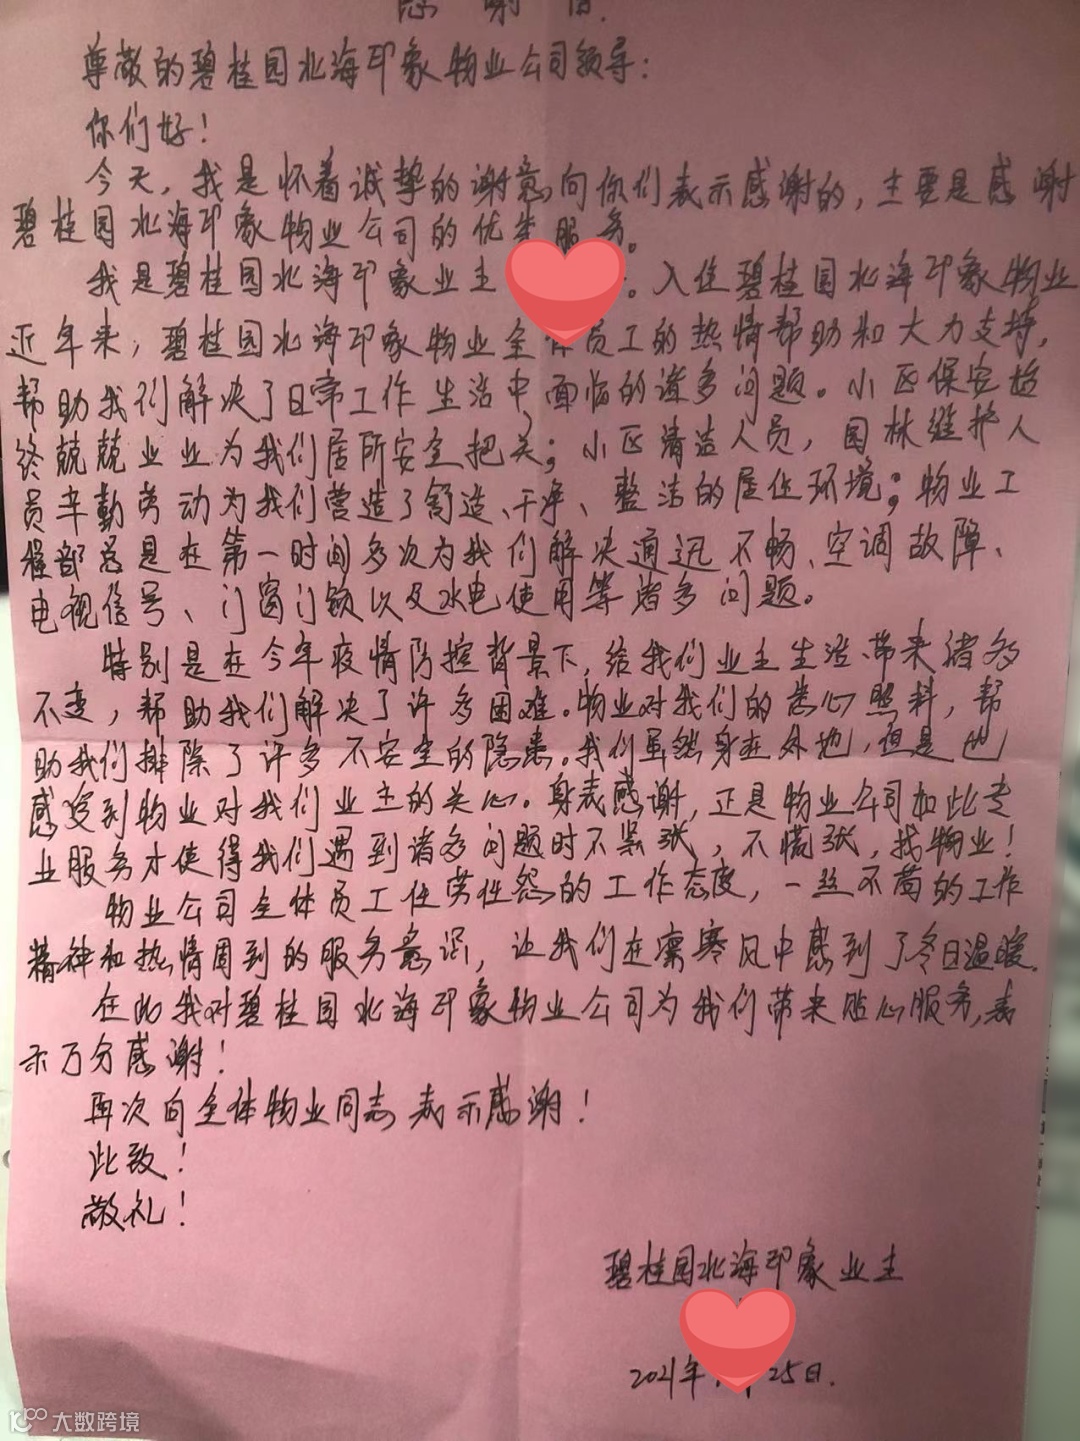 感谢信.
尊敬的碧桂园北海印象物业公司领导：
你们好！
今天，我是怀着诚挚的谢意向你们表示感谢的，主要是感谢
碧桂园北海印象物业公司的优 服务。
我是碧桂园北海印象业主 。入住碧桂园北海印象物业
近年来，碧桂园北海印象物业全体员工的热情帮助和大力支持，
帮助我们解决了日常工作生活中面临的诸多问题。小区保安始
终兢兢业业为我们居所安全把关；小区清洁人员，园林维护人
员辛勤劳动为我们营造了舒适、干净、整洁的居住环境；物业工
程部总是在第一时间多次为我们解决通迅不畅、空调故障、
电视信号、门窗门锁以及水电使用等诸多问题。
特别是在今年疫情防控背景下，给我们业主生活带来诸多
不变，帮助我们解决了许多困难。物业对我们的悉心照料，帮
助我们排除了许多不安全的隐患。我们虽然身在外地，但是也
感受到物业对我们业主的关心。身表感谢，正是物业公司如此专
业服务才使得我们遇到诸多问题时不紧张，不慌张，找物业！
物业公司全体员工任劳任怨的工作态度，一丝不苟的工作
精神和热情周到的服务意识，让我们在凛寒风中感到了冬日温暖.
在此我对碧桂园北海印象物业公司为我们带来贴心服务，表
示万分感谢！
再次向全体物业同志表示感谢！
此致！
敬礼！
碧桂园北海印象业主
2021年 25日.
大数跨境